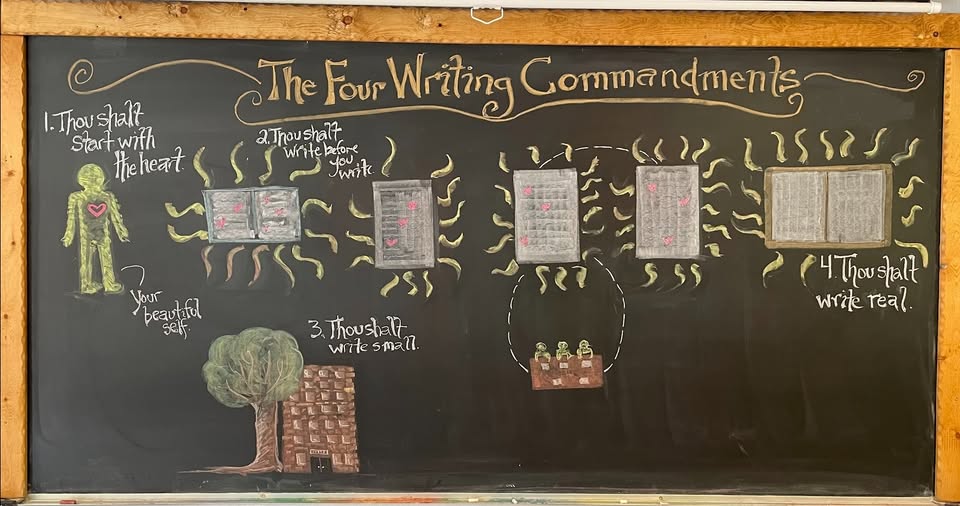 The Four Writing Commandments
1. Thou shalt
start with
the heart.
2. Thou shalt
write before
you
write.
your
beautiful
self.
3. Thou shalt
write small.
4. Thou shalt
write real.